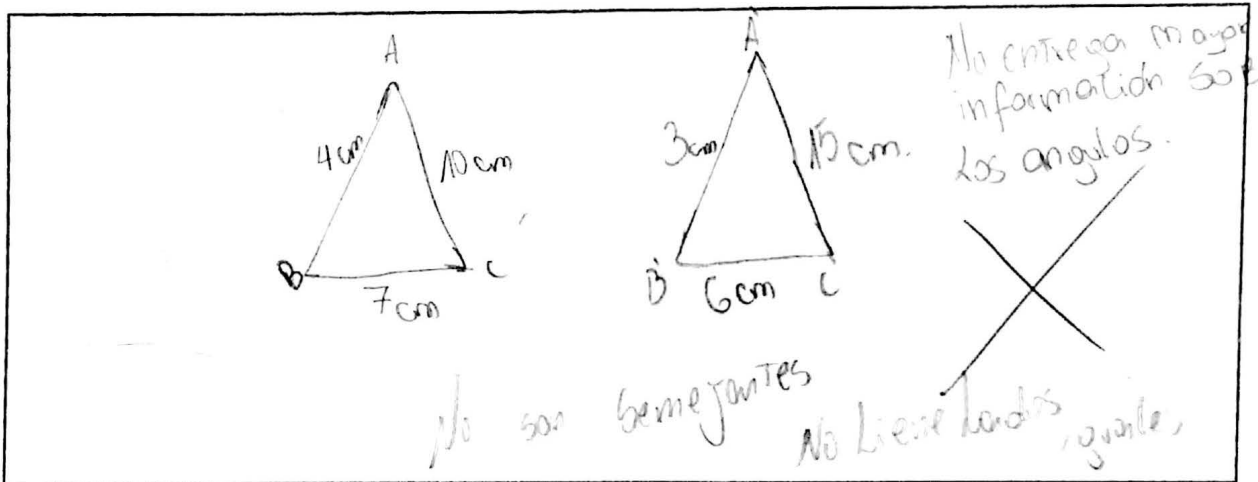 A
4cm
10cm
B
C
7cm
A
3cm
15cm.
B
C
6cm
No entrega mayor
información so
Los angulos.
No son semejantes
No tiene Lados iguales,